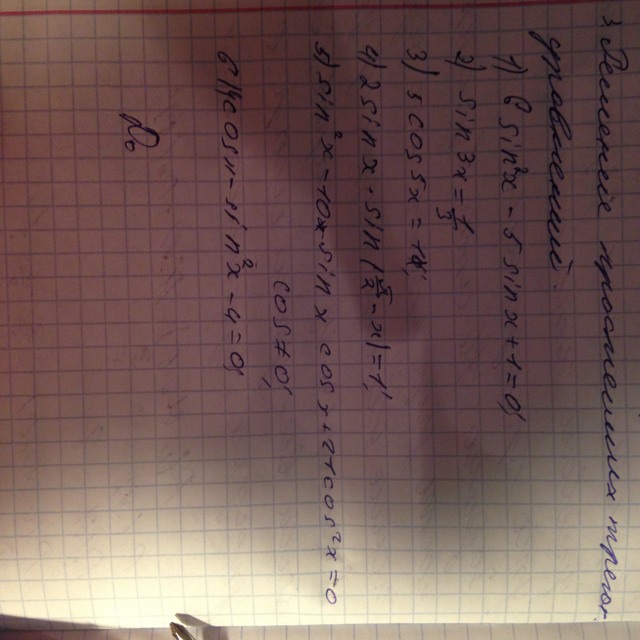 Решение простейших триг.
уравнений.
1) 6 sin²x - 5 sin x + 1 = 0
2) sin 3x =
3) 5 cos 5x =
4) 2 sin x · sin (π/2 - x) = 1
5) sin²x - 10 sin x cos x + 21 cos²x = 0
cos ≠ 0
6) 4 cos x - sin²x - 4 = 0